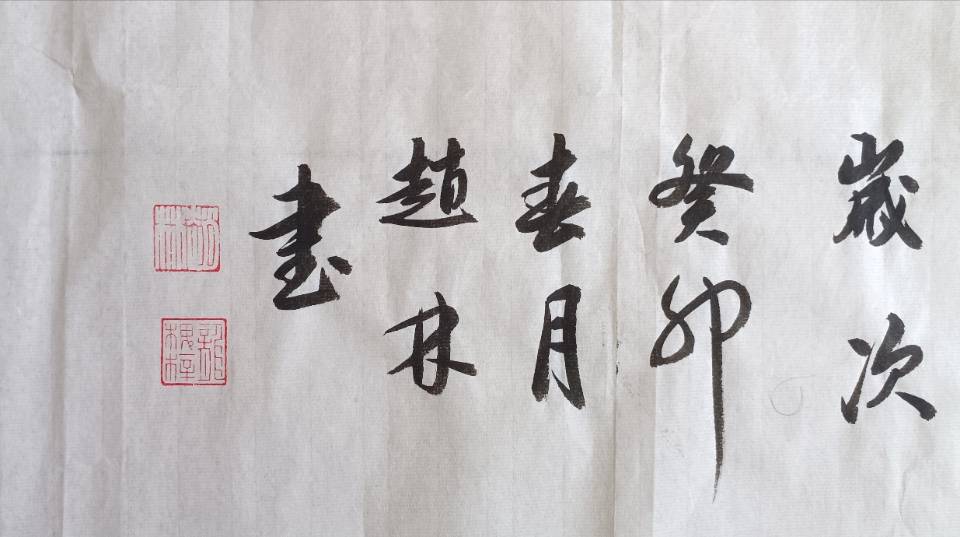 歲次
癸卯
春月
趙林
書
趙林